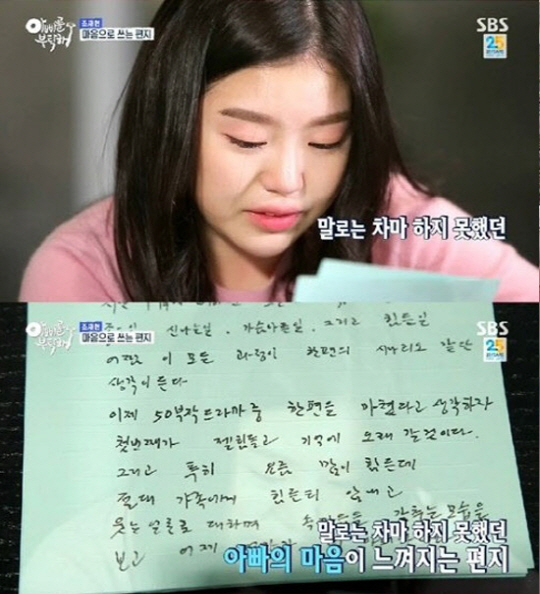 아빠를
부탁해
조재현
마음으로 쓰는 편지
SBS
25
말로는 차마 하지 못했던
아빠를
부탁해
조재현
마음으로 쓰는 편지
SBS
25
신나는일, 가슴아픈일, 그리고 힘든일
이 모든 과정이 한편의 시나리오 같단
생각이 든다
이제 50부작 드라마 중 한편을 마쳤다고 생각하자
첫번째가 젤 힘들고 기억에 오래 갈것이다.
그리고 특히 요즘 많이 힘든데
절대 가족에게 힘든티 안내고
웃는 얼굴로 대하며 모습을
보고 어제
말로는 차마 하지 못했던
아빠의 마음이 느껴지는 편지